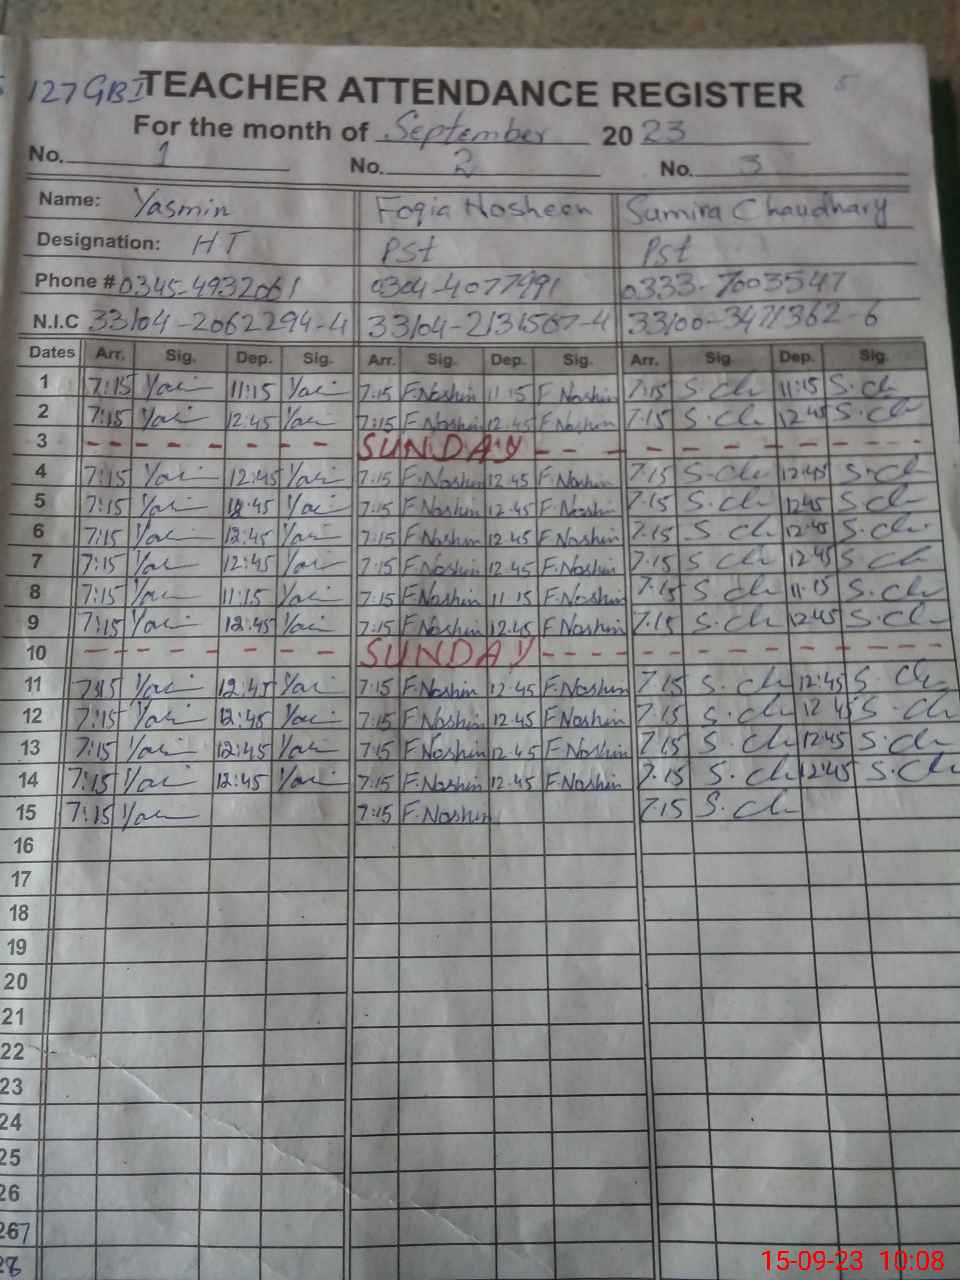 127 GB I TEACHER ATTENDANCE REGISTER 5
For the month of September 2023
No. 1 No. 2 No. 3
Name: Yasmin Foqia Nosheen Sumira Chaudhary
Designation: HT Pst Pst
Phone # 0345-4932061 0304-4077991 0333-7003547
N.I.C 33104-2062294-4 33104-2131567-4 33100-3471362-6
Dates Arr. Sig. Dep. Sig. Arr. Sig. Dep. Sig. Arr. Sig. Dep. Sig.
1 7:15 Yasi 11:15 Yasi 7:15 F.Noshin 11:15 F.Noshin 7:15 S.Ch 11:15 S.Ch
2 7:15 Yasi 12:45 Yasi 7:15 F.Noshin 12:45 F.Noshin 7:15 S.Ch 12:45 S.Ch
3 SUNDAY
4 7:15 Yasi 12:45 Yasi 7:15 F.Noshin 12:45 F.Noshin 7:15 S.Ch 12:45 S.Ch
5 7:15 Yasi 12:45 Yasi 7:15 F.Noshin 12:45 F.Noshin 7:15 S.Ch 12:45 S.Ch
6 7:15 Yasi 12:45 Yasi 7:15 F.Noshin 12:45 F.Noshin 7:15 S.Ch 12:45 S.Ch
7 7:15 Yasi 12:45 Yasi 7:15 F.Noshin 12:45 F.Noshin 7:15 S.Ch 12:45 S.Ch
8 7:15 Yasi 11:15 Yasi 7:15 F.Noshin 11:15 F.Noshin 7:15 S.Ch 11:15 S.Ch
9 7:15 Yasi 12:45 Yasi 7:15 F.Noshin 12:45 F.Noshin 7:15 S.Ch 12:45 S.Ch
10 SUNDAY
11 7:15 Yasi 12:45 Yasi 7:15 F.Noshin 12:45 F.Noshin 7:15 S.Ch 12:45 S.Ch
12 7:15 Yasi 12:45 Yasi 7:15 F.Noshin 12:45 F.Noshin 7:15 S.Ch 12:45 S.Ch
13 7:15 Yasi 12:45 Yasi 7:15 F.Noshin 12:45 F.Noshin 7:15 S.Ch 12:45 S.Ch
14 7:15 Yasi 12:45 Yasi 7:15 F.Noshin 12:45 F.Noshin 7:15 S.Ch 12:45 S.Ch
15 7:15 Yasi 7:15 F.Noshin 7:15 S.Ch
16
17
18
19
20
21
22
23
24
25
26
267
28
15-09-23 10:08